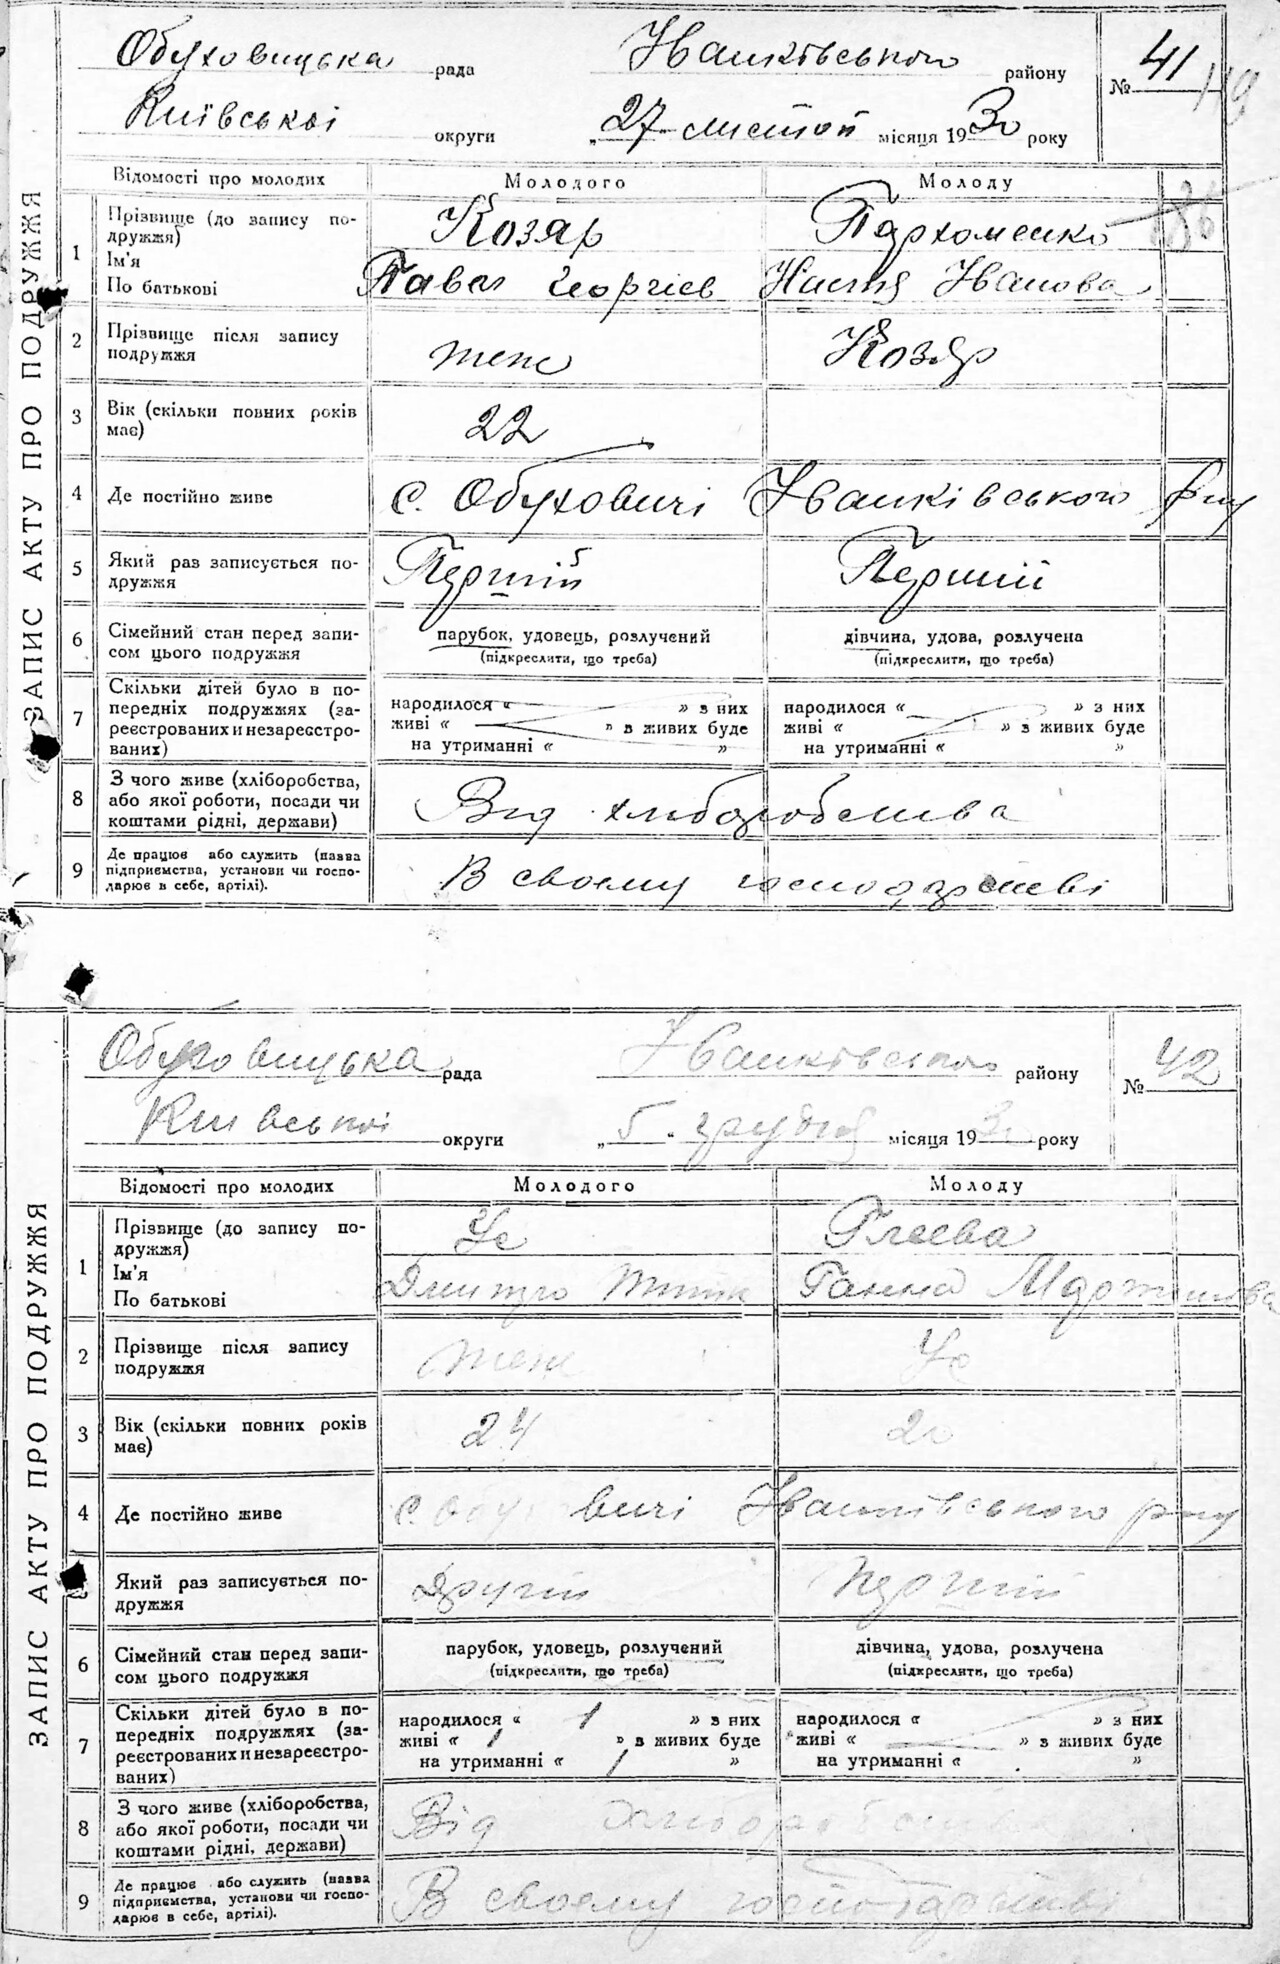 Обуховицька рада Іванківського району № 41
119
Київської округи „27" листоп місяця 1930 року
ЗАПИС АКТУ ПРО ПОДРУЖЖЯ
Відомості про молодих Молодого Молоду
1 Прізвище (до запису по-
дружжя) Козяр Пархоменко
Ім'я
По батькові Павел Георгіев Настя Іванова
2 Прізвище після запису
подружжя теж Козяр
3 Вік (скільки повних років
має) 22
4 Де постійно живе с. Обуховичі Іванківського р-ну
5 Який раз записується по-
дружжя Перший Перший
6 Сімейний стан перед запи-
сом цього подружжя парубок, удовець, розлучений дівчина, удова, розлучена
(підкреслити, що треба) (підкреслити, що треба)
7 Скільки дітей було в по-
передніх подружжях (за-
реєстрованих и незареєстро-
ваних) народилося « » з них народилося « » з них
живі « » в живих буде живі « » з живих буде
на утриманні « » на утриманні « »
8 З чого живе (хліборобства,
або якої роботи, посади чи
коштами рідні, держави) Від хліборобства
9 Де працює або служить (назва
підприємства, установи чи госпо-
дарює в себе, артілі). В своему господарстві
Обуховицька рада Іванківського району № 42
Київської округи „5" грудня місяця 1930 року
ЗАПИС АКТУ ПРО ПОДРУЖЖЯ
Відомості про молодих Молодого Молоду
1 Прізвище (до запису по-
дружжя) Ус
Ім'я
По батькові Дмитро Ганна
2 Прізвище після запису
подружжя теж Ус
3 Вік (скільки повних років
має) 24 20
4 Де постійно живе с. Обуховичі Іванківського р-ну
Який раз записується по-
дружжя Другий Перший
6 Сімейний стан перед запи-
сом цього подружжя парубок, удовець, розлучений дівчина, удова, розлучена
(підкреслити, що треба) (підкреслити, що треба)
7 Скільки дітей було в по-
передніх подружжях (за-
реєстрованих и незареєстро-
ваних) народилося « 1 » з них народилося « » з них
живі « 1 » в живих буде живі « » з живих буде
на утриманні « 1 » на утриманні « »
8 З чого живе (хліборобства,
або якої роботи, посади чи
коштами рідні, держави) Від хліборобства
9 Де працює або служить (назва
підприємства, установи чи госпо-
дарює в себе, артілі). В своему господарстві